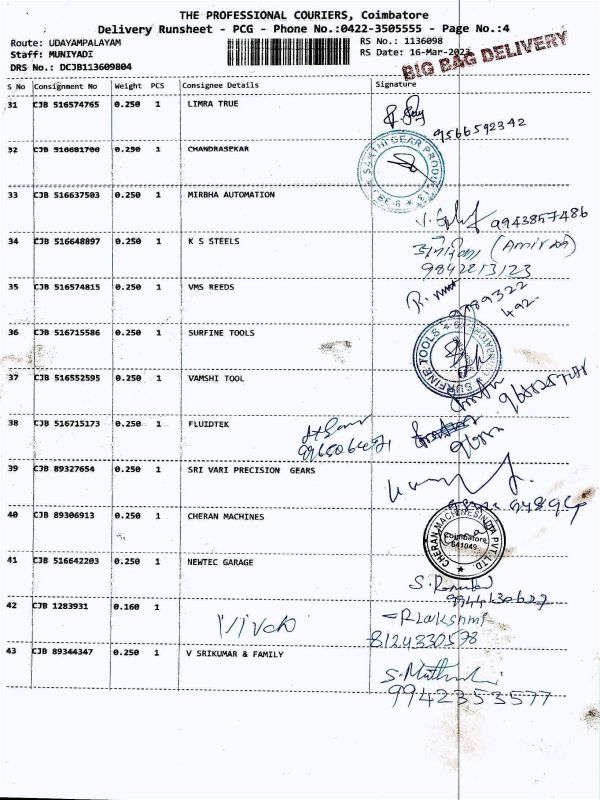 THE PROFESSIONAL COURIERS, Coimbatore
Delivery Runsheet - PCG - Phone No.:0422-3505555 - Page No.:4
Route: UDAYAMPALAYAM
Staff: MUNIYADI
DRS No.: DCJB113609804
RS No.: 1136098
RS Date: 16-Mar-2023
BIG BAG DELIVERY
S No Consignment No Weight PCS Consignee Details Signature
31 CJB 516574765 0.250 1 LIMRA TRUE
9566592342
32 CJB 516681700 0.250 1 CHANDRASEKAR
SAKTHI GEAR PRODUCTS
33 CJB 516637503 0.250 1 MIRBHA AUTOMATION
9943857486
34 CJB 516648897 0.250 1 K S STEELS
9842213123
35 CJB 516574815 0.250 1 VMS REEDS
492
36 CJB 516715586 0.250 1 SURFINE TOOLS
SURFINE TOOLS
37 CJB 516552595 0.250 1 VAMSHI TOOL
38 CJB 516715173 0.250 1 FLUIDTEK
39 CJB 89327654 0.250 1 SRI VARI PRECISION GEARS
40 CJB 89306913 0.250 1 CHERAN MACHINES
CHERAN MACHINES INDIA PVT. LTD
Coimbatore
641049
41 CJB 516642203 0.250 1 NEWTEC GARAGE
42 CJB 1283931 0.160 1
R Lakshmi
8124330578
43 CJB 89344347 0.250 1 V SRIKUMAR & FAMILY
9942353577